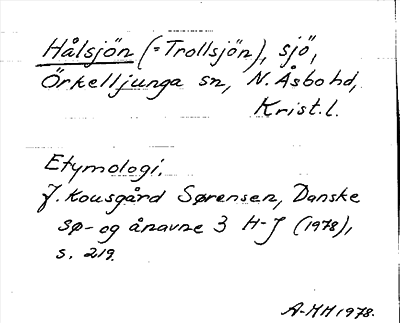 Hålsjön (=Trollsjön), sjö,
Örkelljunga sn, N. Åsbo hd,
Krist. l.
Etymologi.
J. Kousgård Sørensen, Danske
sø- og ånavne 3 H-J (1978),
s. 219.
A-MH 1978.